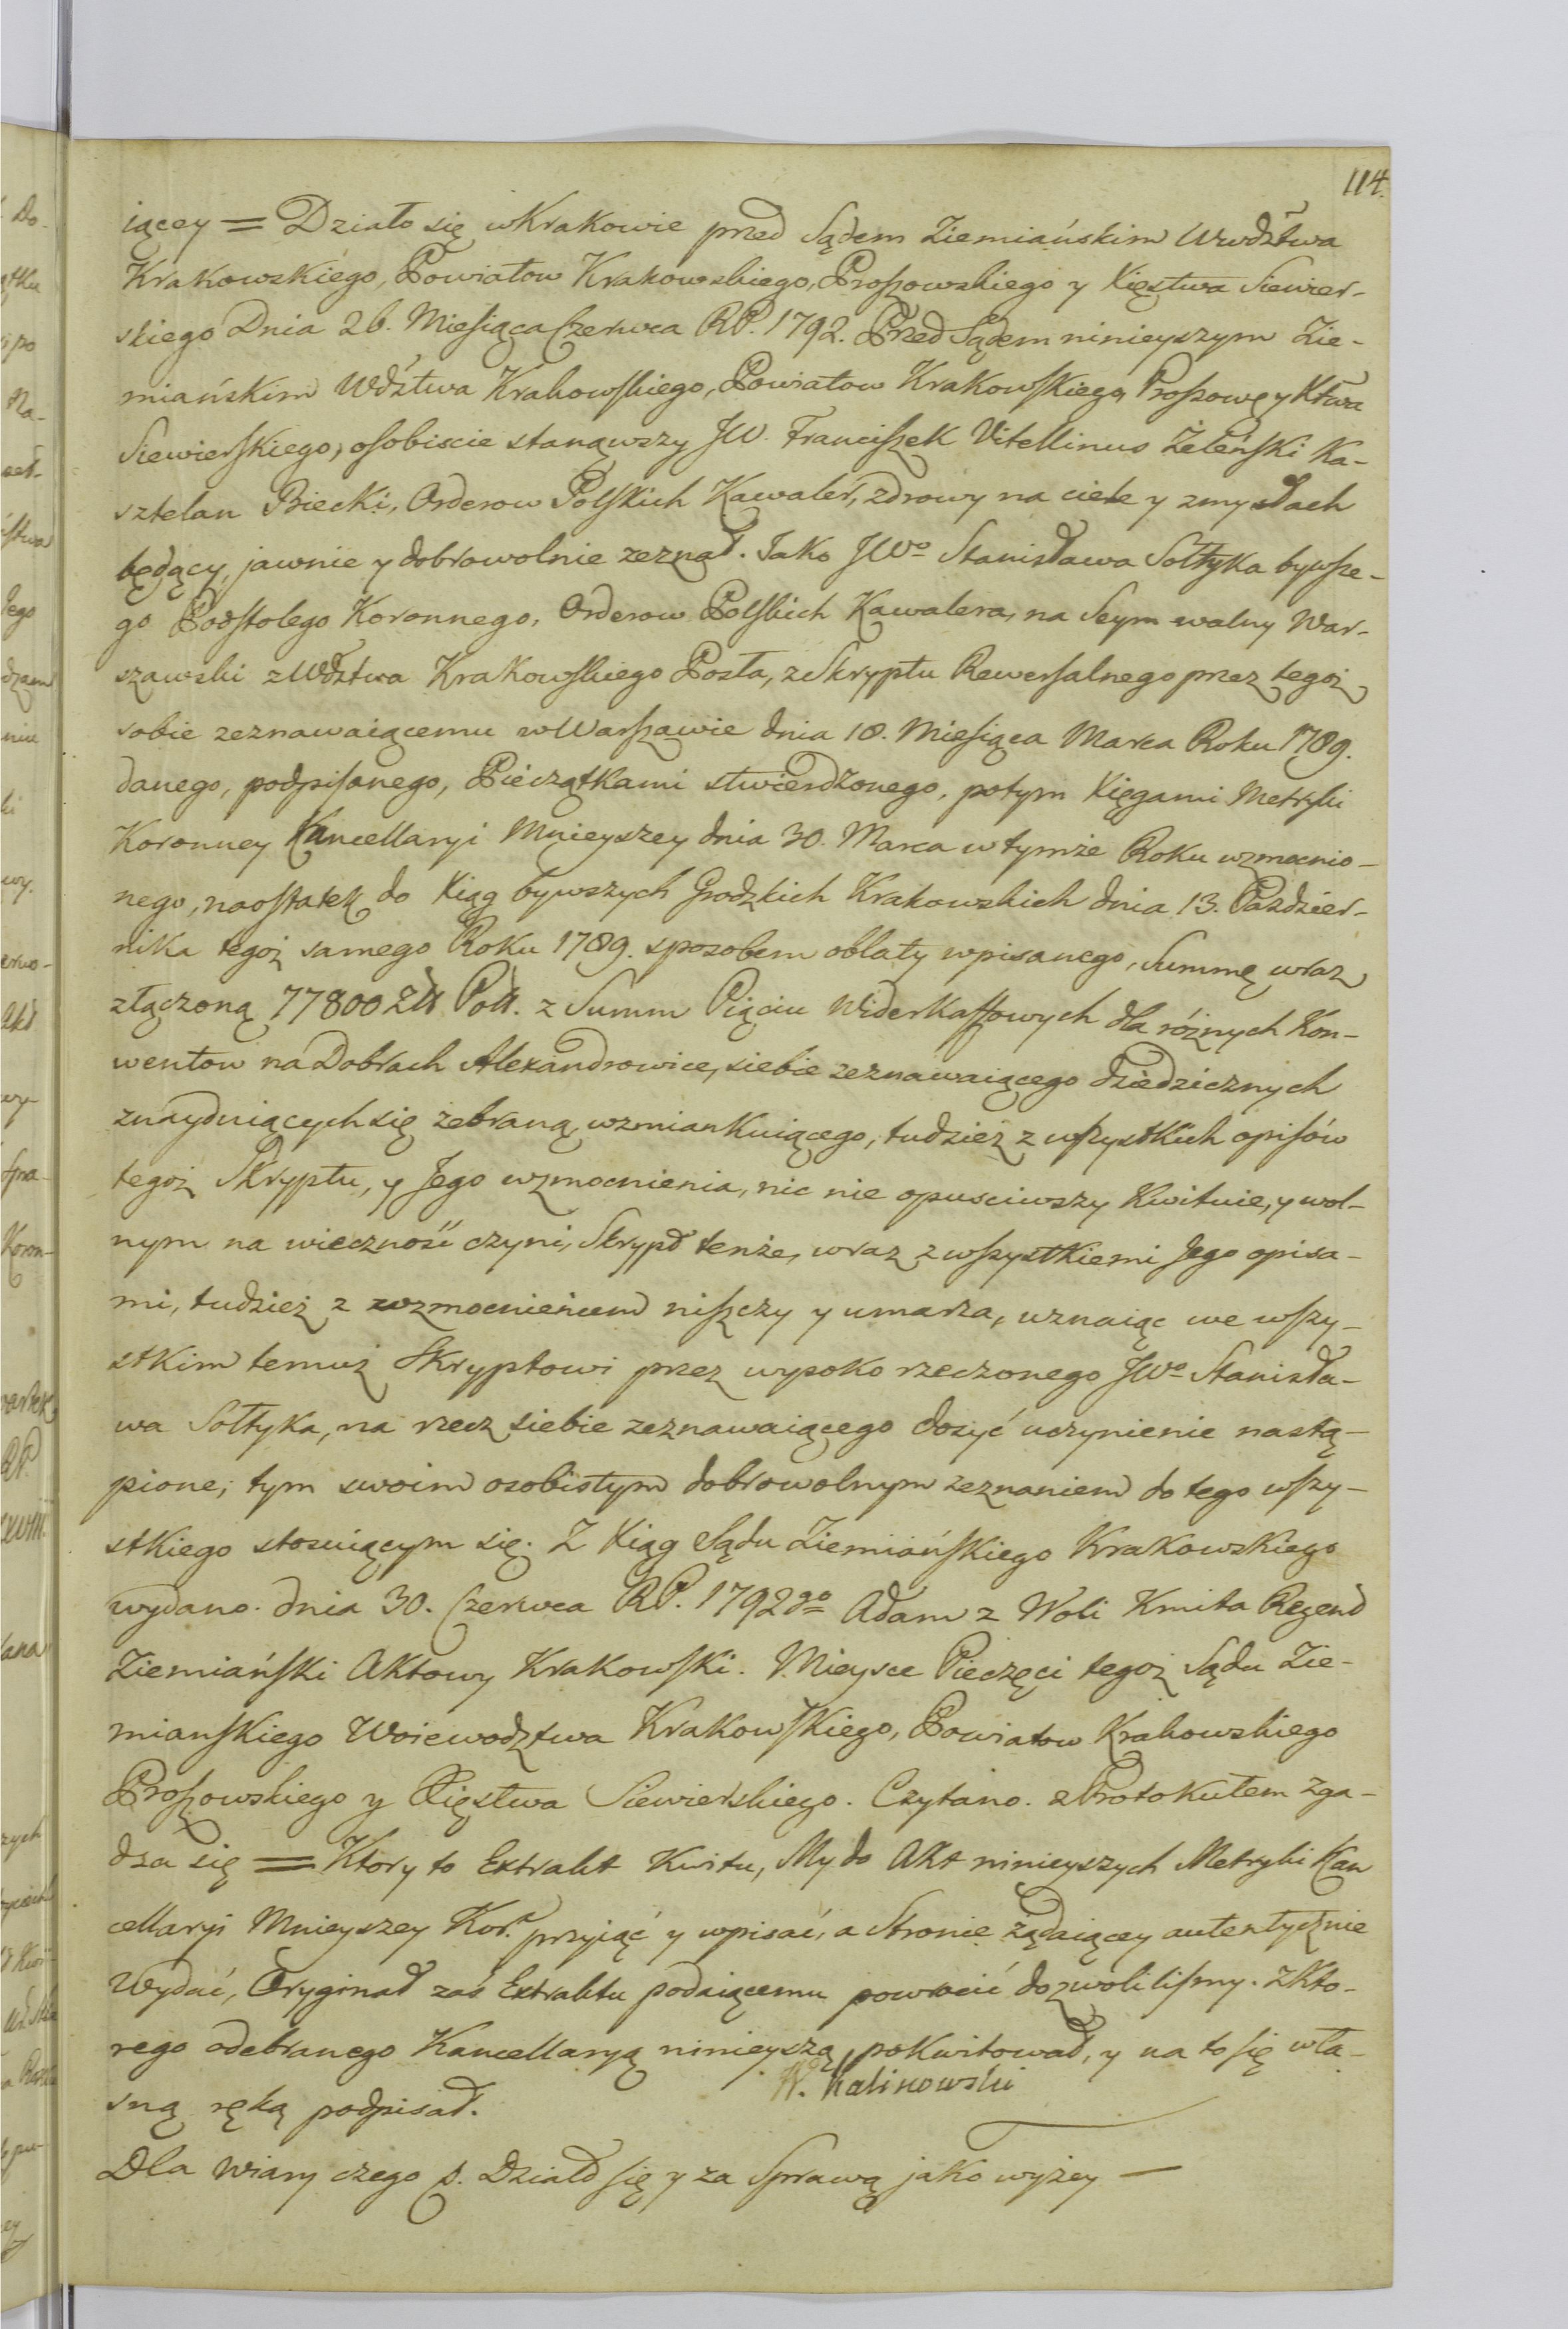 114.
iącey = Działo się w Krakowie przed Sądem Ziemiańskim Wwdztwa
Krakowskiego, Powiatow Krakowskiego, Proszowskiego y Xięstwa Siewier-
skiego Dnia 26. Miesiąca Czerwca RP. 1792. Przed Sądem ninieyszym Zie-
miańskim Wdztwa Krakowskiego, Powiatow Krakowskiego, Proszowgo y Xtwa
Siewierskiego, osobiscie stanąwszy JW. Franciszek Vitellinus Żeleński Ka-
sztelan Biecki, Orderow Polskich Kawaler, zdrowy na ciele y zmysłach
będący, jawnie y dobrowolnie zeznał. Jako JWo Stanisława Sołtyka bywsze-
go Podstolego Koronnego, Orderow Polskich Kawalera, na Seym walny War-
szawski z Wdztwa Krakowskiego Posła, z Skryptu Rewersalnego przez tegoż
sobie zeznawaiącemu w Warszawie dnia 18. Miesiąca Marca Roku 1789.
danego, podpisanego, Pieczątkami stwierdzonego, potym Xięgami Metryki
Koronney Kancellaryi Mnieyszey dnia 30. Marca w tymże Roku wzmocnio-
nego, naostatek do Xiąg bywszych Grodzkich Krakowskich dnia 13. Paździer-
nika tegoż samego Roku 1789. sposobem oblaty wpisanego, Summę wraz
złączoną 77800 Zło Pols. z Summ Pięciu Widerkaffowych dla różnych Kon-
wentow na Dobrach Alexandrowice, siebie zeznawaiącego dziedzicznych
znayduiących się zebraną, wzmiankuiącego, tudzież z wszystkich opisów
tegoż Skryptu, y Jego wzmocnienia, nic nie opusciwszy Kwituie, y wol-
nym na wieczność czyni, Skrypt tenże, wraz z wszystkiemi Jego opisa-
mi, tudzież z wzmocnieniem niszczy y umarza, uznaiąc we wszy-
stkim temuż Skryptowi przez wysoko rzeczonego JWo Stanisła-
wa Sołtyka, na rzecz siebie zeznawaiącego dosyć uczynienie nastą-
pione; tym swoim osobistym dobrowolnym zeznaniem do tego wszy-
stkiego stosuiącym się. Z Xiąg Sądu Ziemiańskiego Krakowskiego
wydano. dnia 30. Czerwca RP. 1792go Adam z Woli Kmita Regent
Ziemiański Aktowy Krakowski. Mieysce Pieczęci tegoż Sądu Zie-
mianskiego Woiewodztwa Krakowskiego, Powiatow Krakowskiego
Proszowskiego y Xięstwa Siewierskiego. Czytano. z Protokułem zga-
dza się = Ktory to Extrakt Kwitu, My do Akt ninieyszych Metryki Kan
cellaryi Mnieyszey Kor. przyiąć y wpisać, a Stronie żądaiącey autentycznie
wydać, Oryginał zaś Extraktu podaiącemu powrocić dozwolilismy. z Kto-
rego odebranego Kancellaryą ninieyszą pokwitował, y na to się wła-
sną ręką podpisał. W. Kalinowski
Dla wiary czego p. Działo się y za Sprawą jako wyżey —